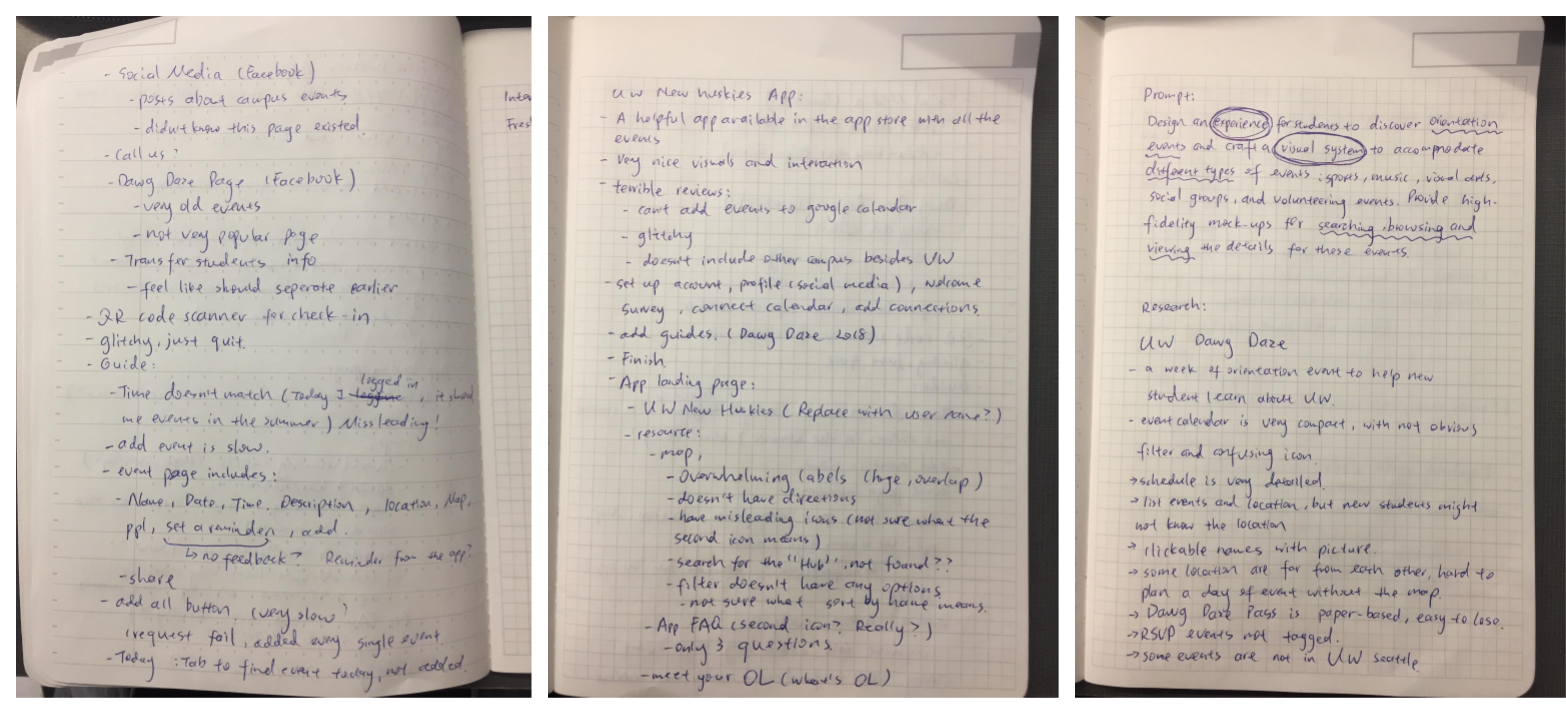 - Social Media (Facebook)
- posts about campus events
- didn't know this page existed.
- Call us?
- Dawg Daze Page (Facebook)
- very old events
- not very popular page
- Transfer students info
- feel like should seperate earlier
- QR code scanner for check-in
- glitchy, just quit.
- Guide:
logged in
- Time doesn't match (Today I , it show
me events in the summer) Missleading!
- add event is slow.
- event page includes:
- Name, Date, Time, Description, location, Map,
ppl, set a reminder, add.
↳ no feedback? Reminder from the app?
- share
- add all button. (very slow?
(request fail, added every single event.
- Today: Tab to find event today, not added.
UW New Huskies App:
- A helpful app available in the app store with all the
events
- Very nice visuals and interaction
- terrible reviews:
- can't add events to google calendar
- glitchy
- doesn't include other campus besides UW
- set up acount, profile (social media), welcome
survey, connect calendar, add connections.
- add guides. (Dawg Daze 2018)
- Finish
- App landing page:
- UW New Huskies (Replace with user name?)
- resource:
- map,
- Overwhelming labels (huge, overlap)
- doesn't have directions
- have misleading icons (not sure what the
second icon means)
- search for the "Hub", not found??
- filter doesn't have any options
- not sure what sort by name means.
- App FAQ (second icon? Really?)
- only 3 questions.
- meet your OL (who's OL)
Prompt:
Design an experience for students to discover orientation
events and craft a visual system to accommodate
different types of events: sports, music, visual arts,
social groups, and volunteering events. Provide high-
fidelity mock-ups for searching, browsing and
viewing the details for these events.
Research:
UW Dawg Daze
- a week of orientation event to help new
student learn about UW.
- event calendar is very compact, with not obvious
filter and confusing icon.
→ schedule is very detailed.
→ list events and location, but new students might
not know the location
→ clickable names with picture.
→ some location are far from each other, hard to
plan a day of event without the map.
→ Dawg Daze Pass is paper-based, easy to lose.
→ RSVP events not tagged.
→ some events are not in UW seattle